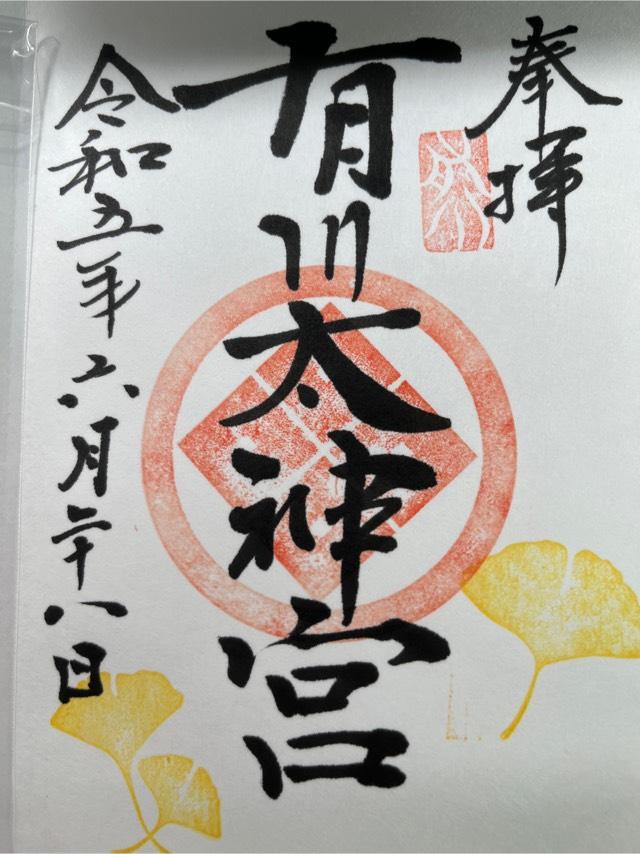 奉拝
有川太神宮
令和五年六月二十八日